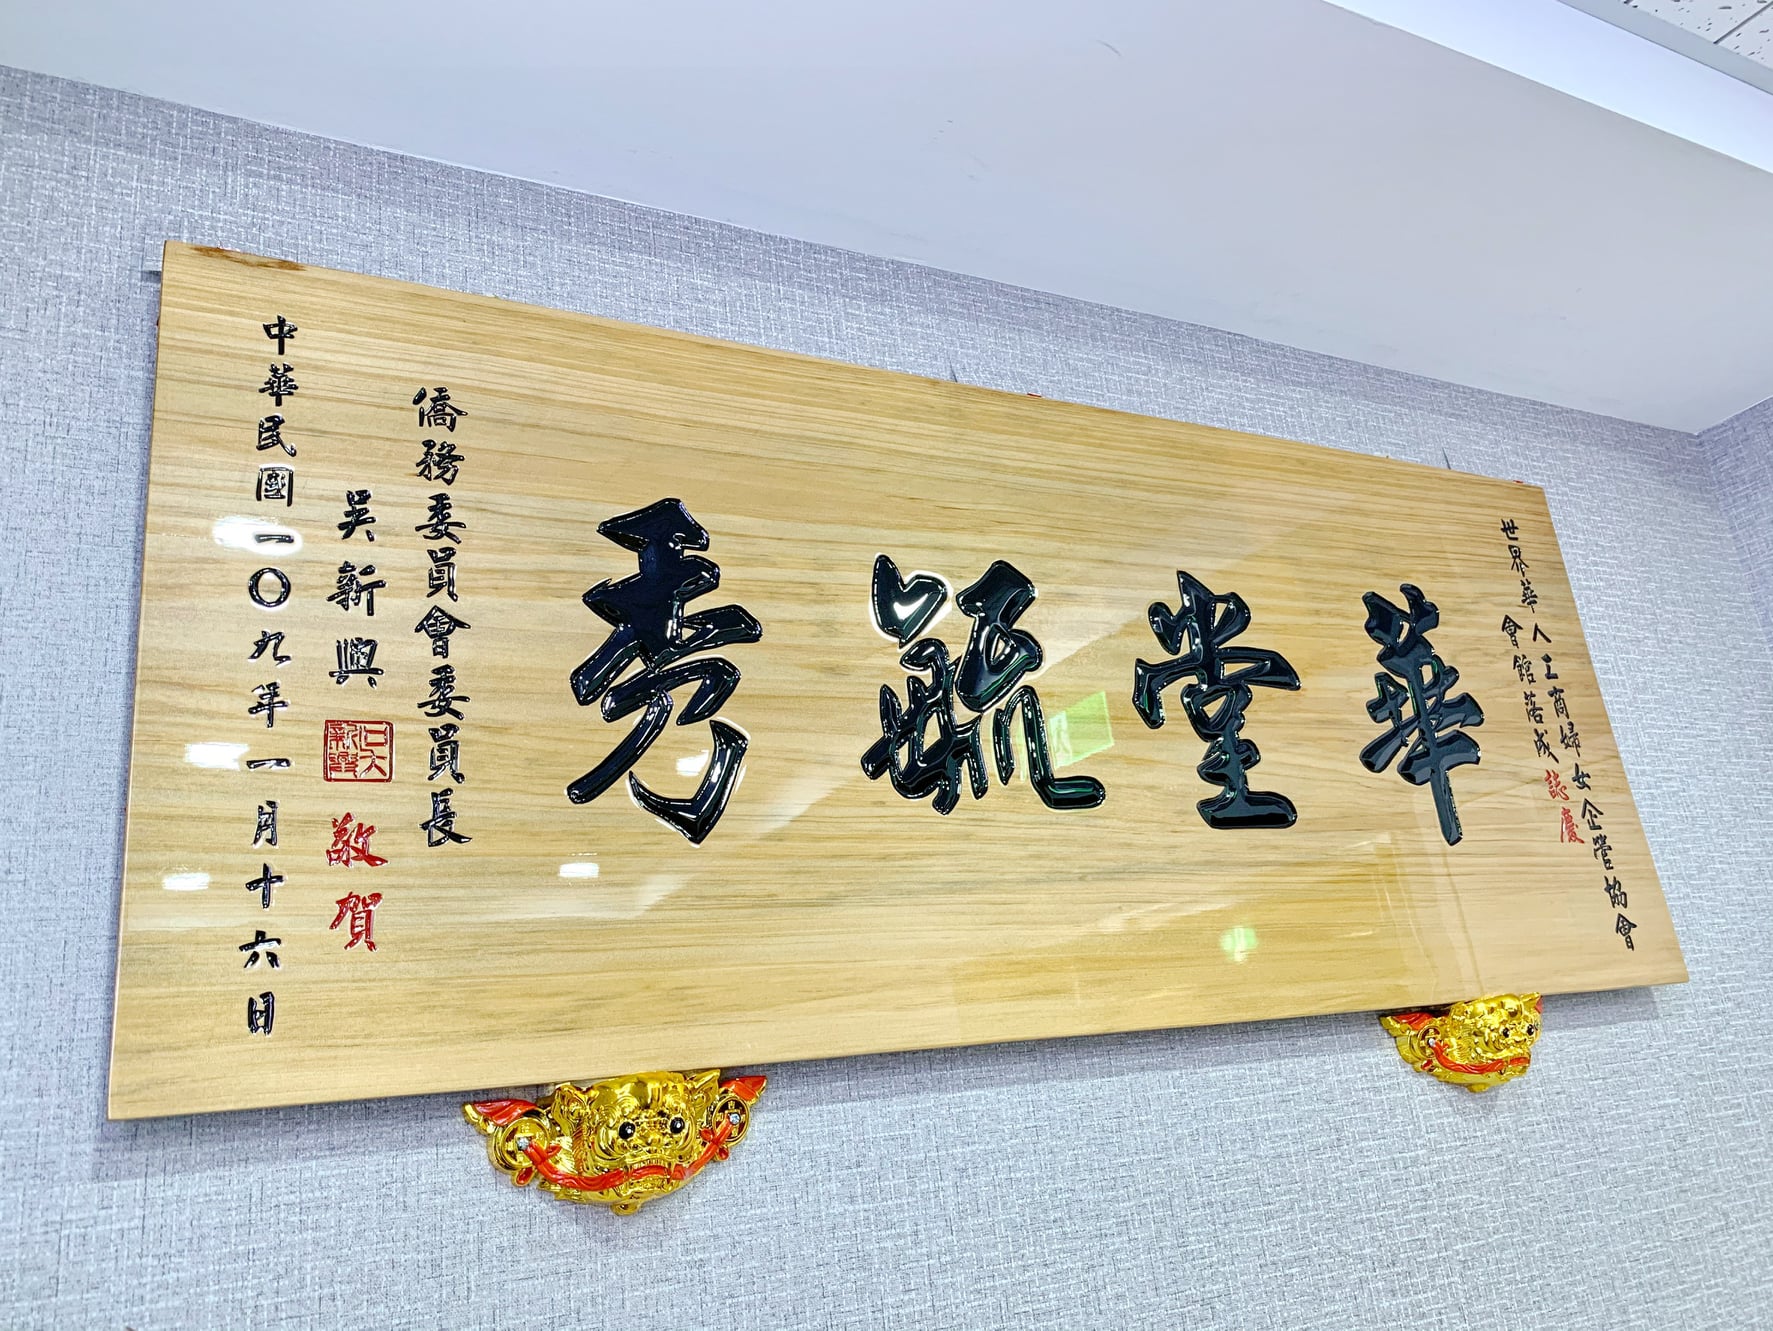 世界華人工商婦女企管協會
會館落成誌慶
華堂毓秀
僑務委員會委員長
吳新興 敬賀
中華民國一〇九年一月十六日